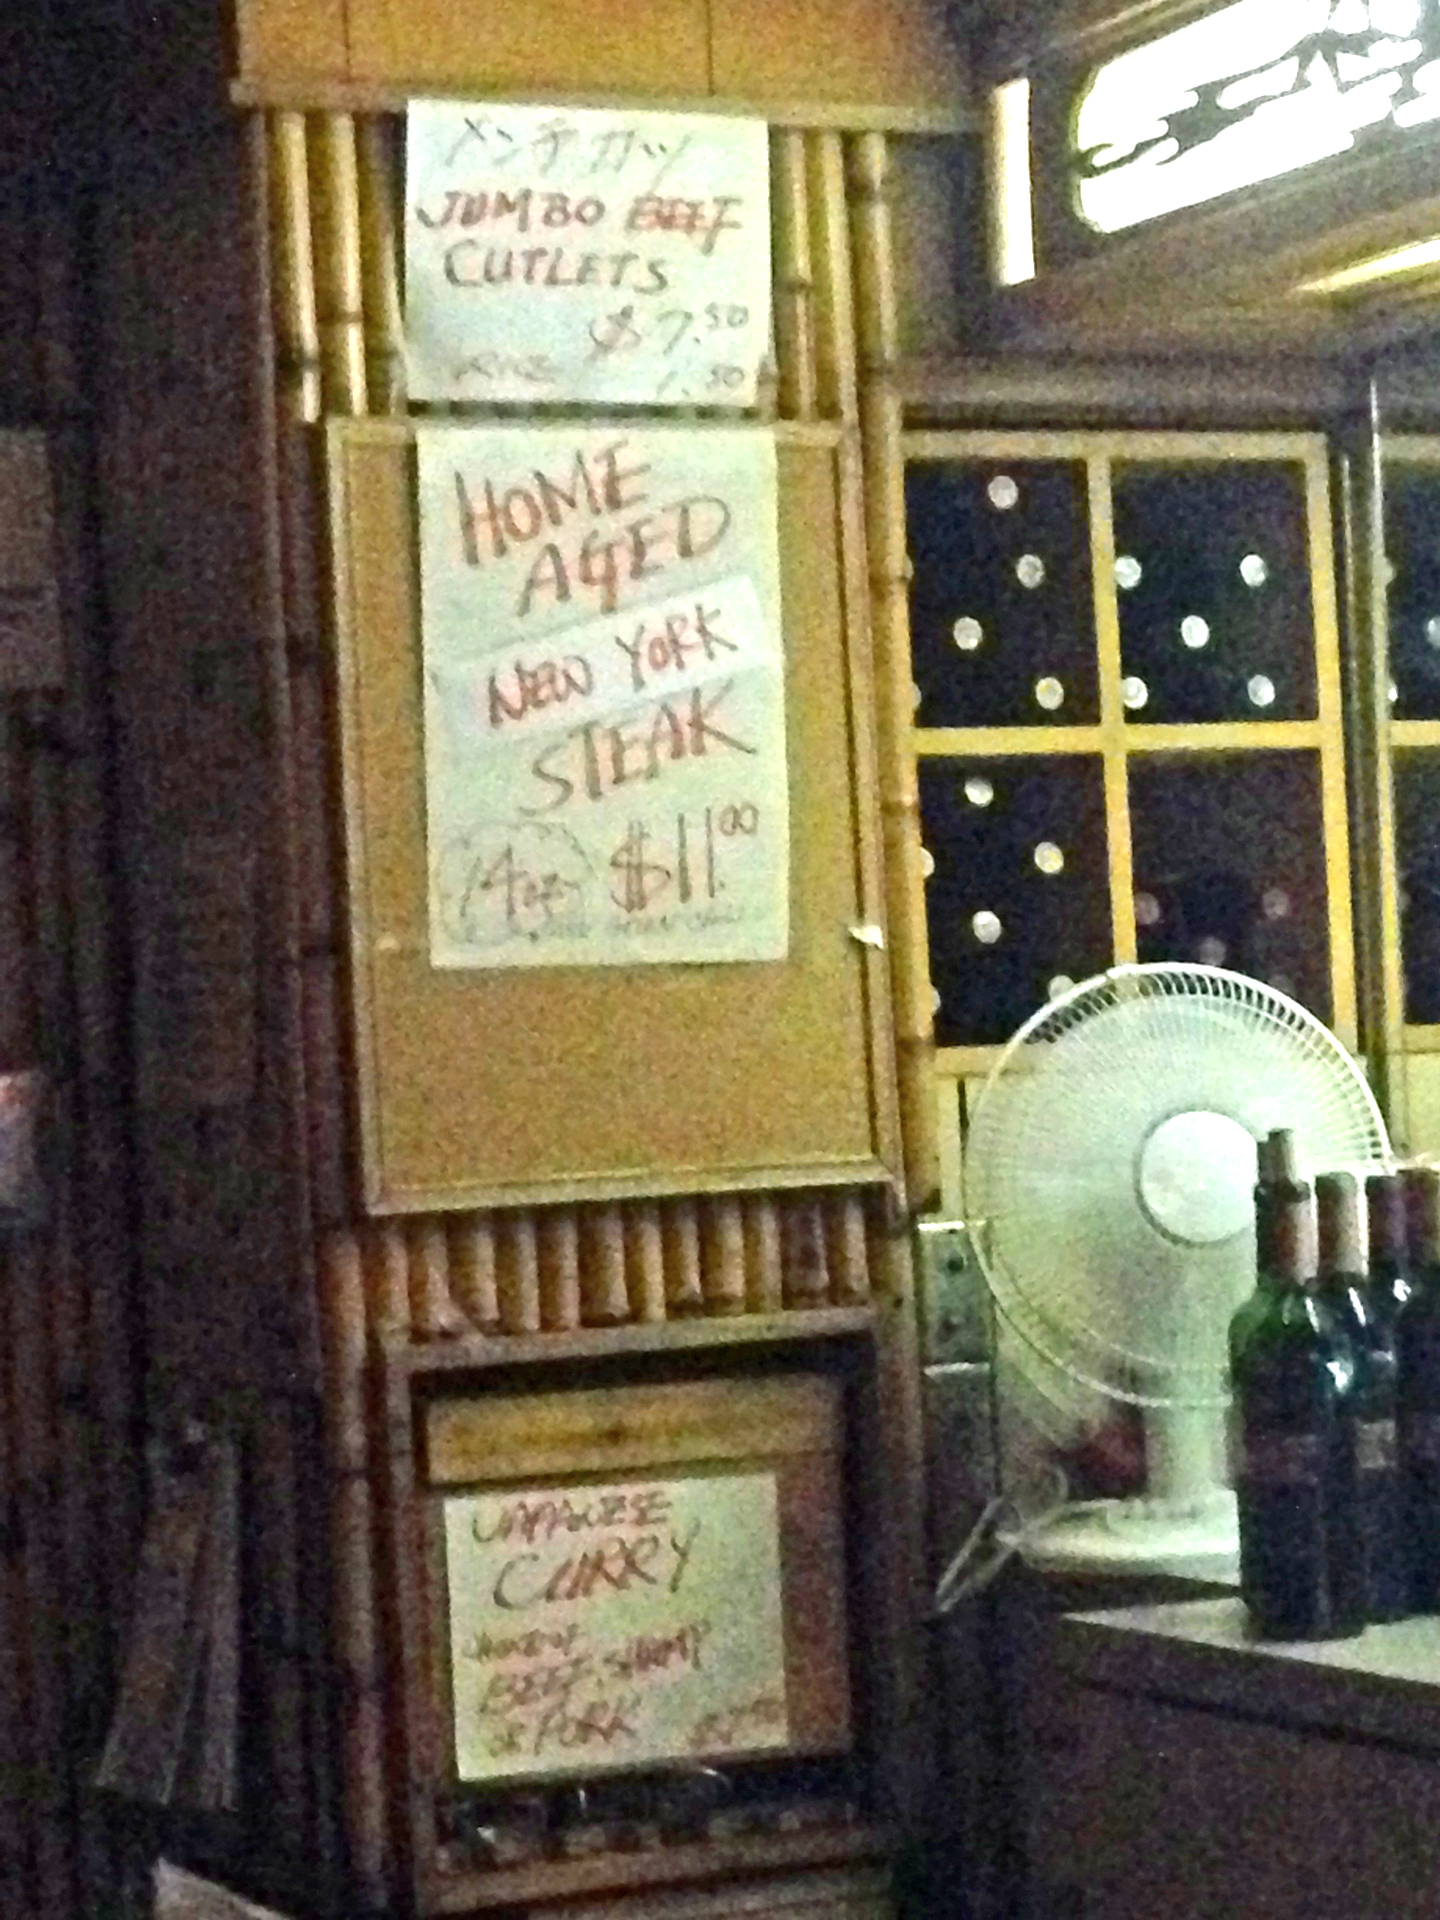 メンチカツ
JUMBO BEEF
CUTLETS
$7.50
RICE 1.50
HOME
AGED
NEW YORK
STEAK
14oz $11.00
JAPANESE
CURRY
BEEF, SHRIMP
or PORK